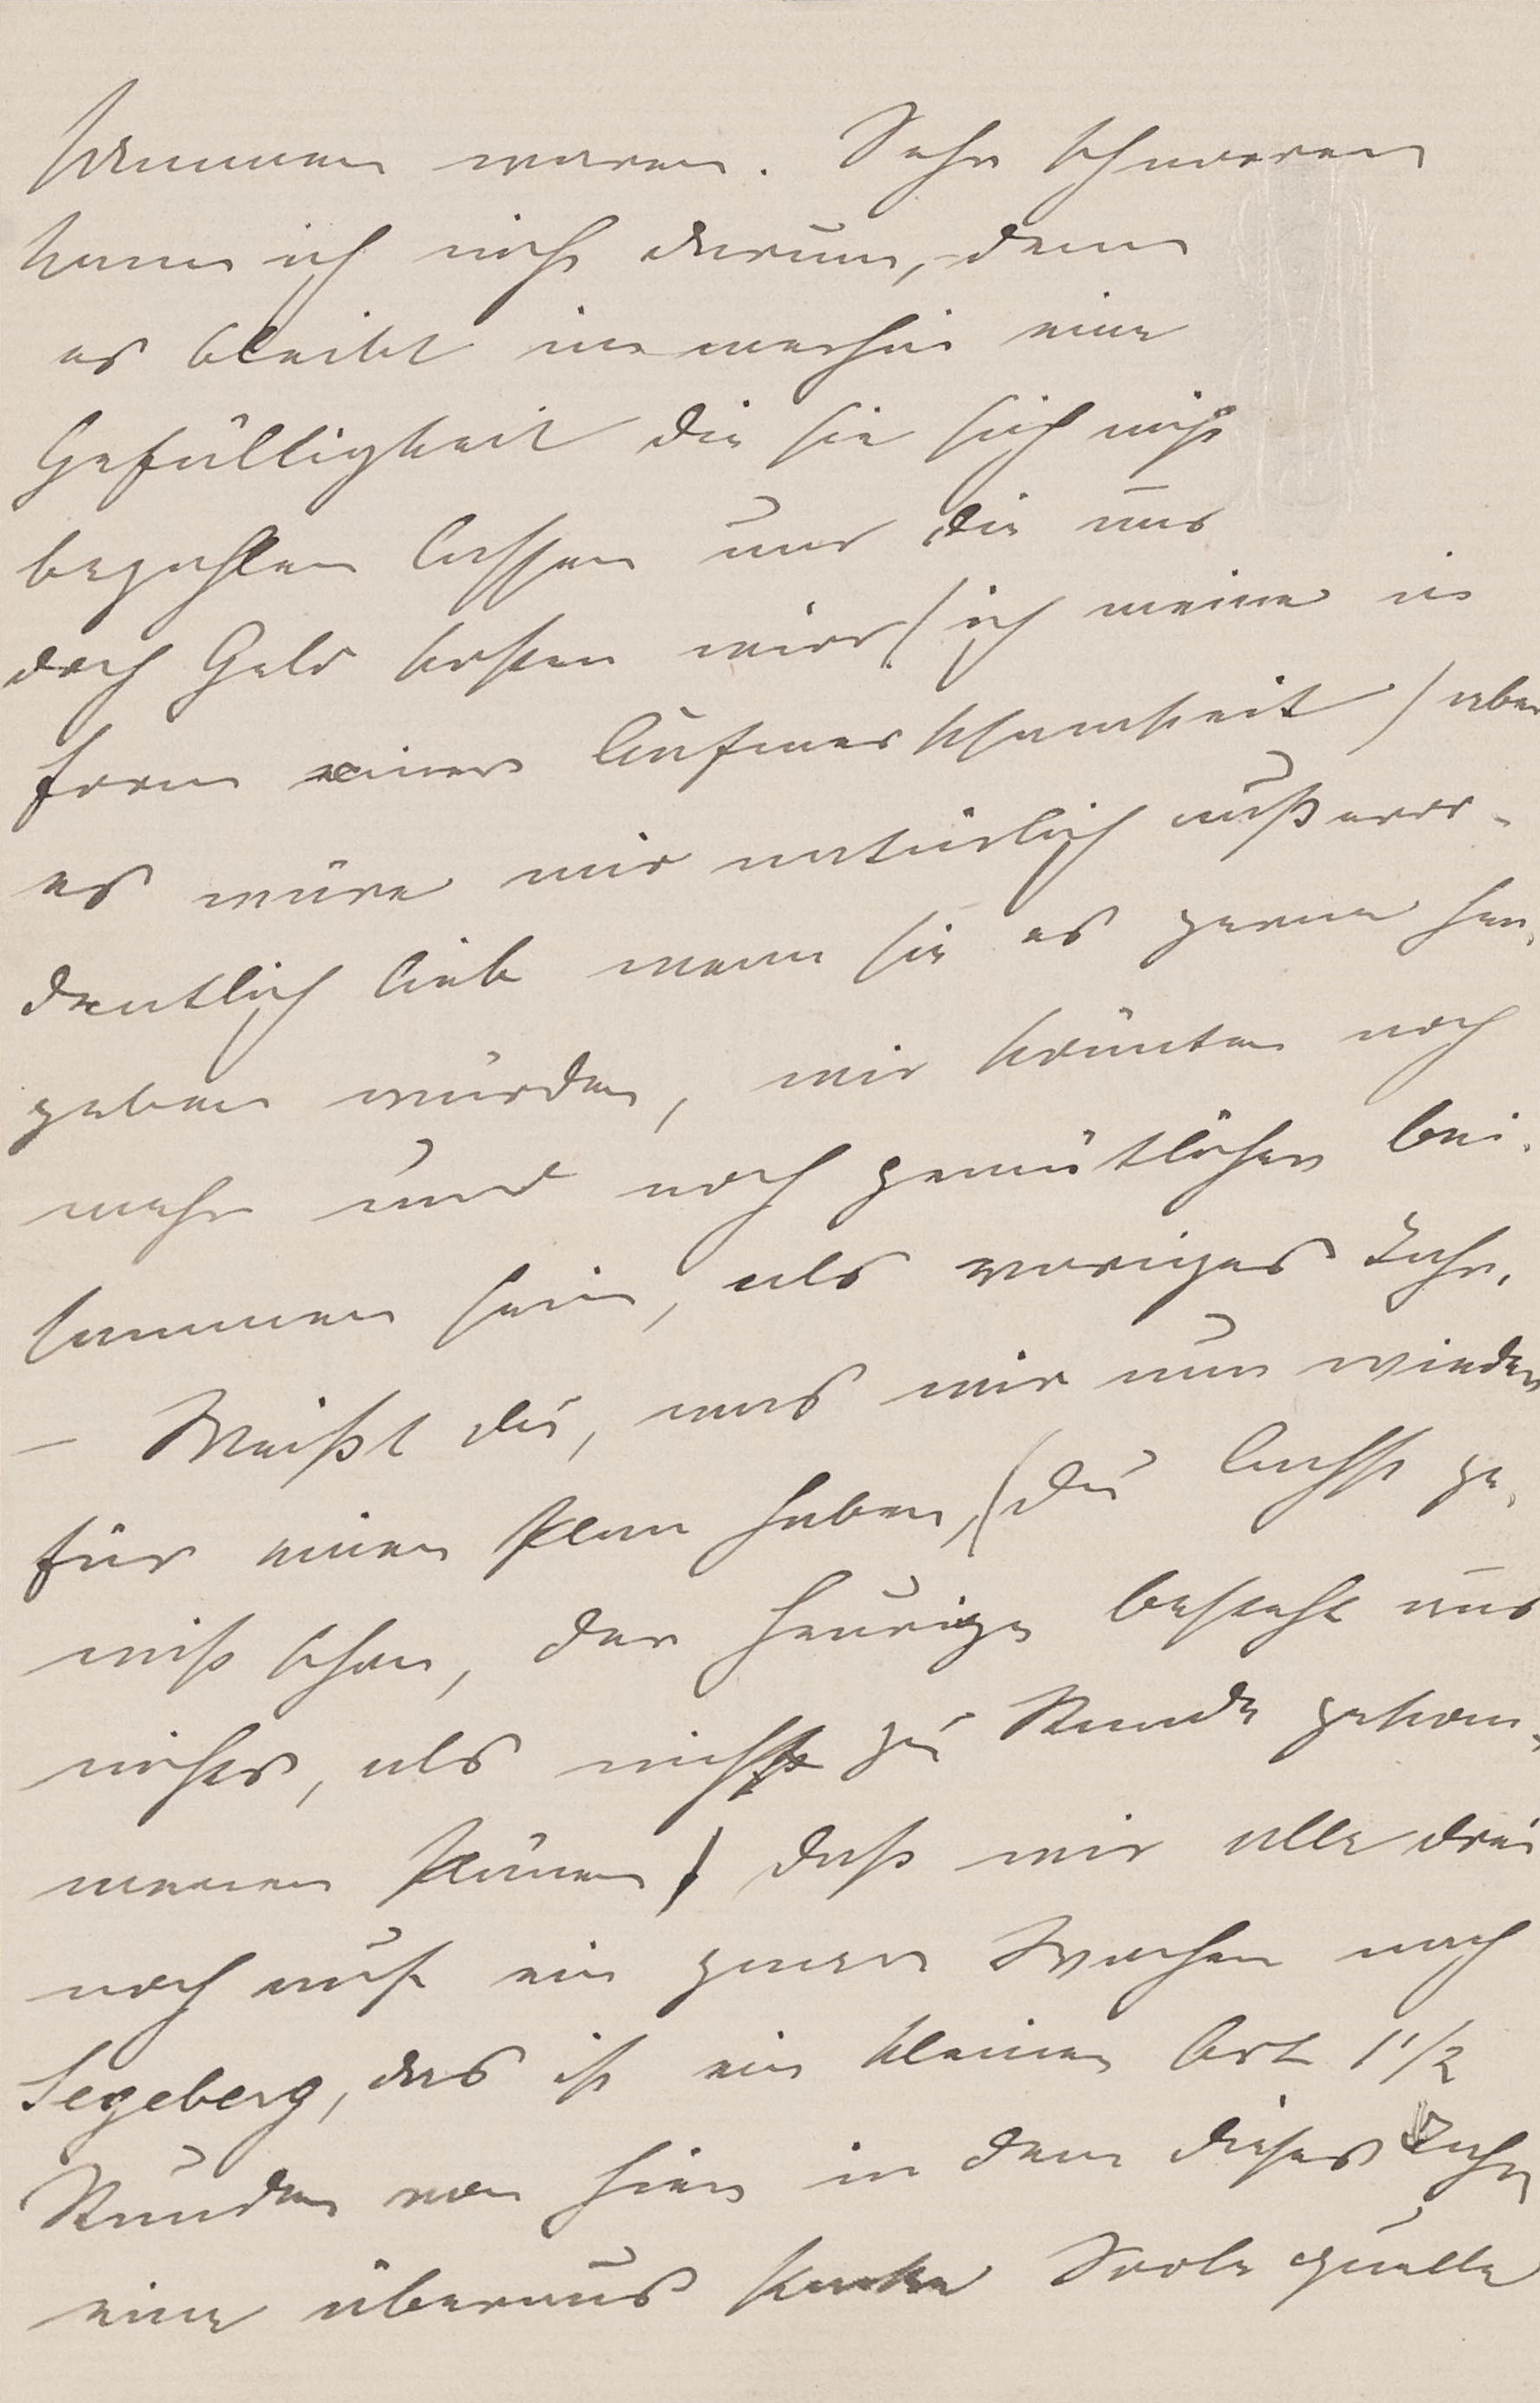 kommen waren. Sehr schwören
kann ich nicht darum, denn
es bleibt immerhin eine
Gefälligkeit die sie sich nicht
bezahlen lassen und die uns
doch Geld kosten wird (ich meine in
Form einer Aufmerksamkeit) aber
es wäre mir natürlich außeror-
dentlich lieb wenn sie es gerne her-
geben würden, wir könnten noch
mehr und noch gemütlicher bei-
sammen sein, als voriges Jahr.
— Weißt du, was wir nun wieder
für einen Plan haben, (du lachst ge-
wiß schon, der heurige besteht aus
nichts, als nicht zu Stande gekom-
menen Plänen) daß wir alle drei
noch auf ein paar Wochen nach
Segeberg, das ist ein kleiner Ort 1 1/2
Stunden von hier in dem dieses Jahr
eine überaus starke Soolequelle